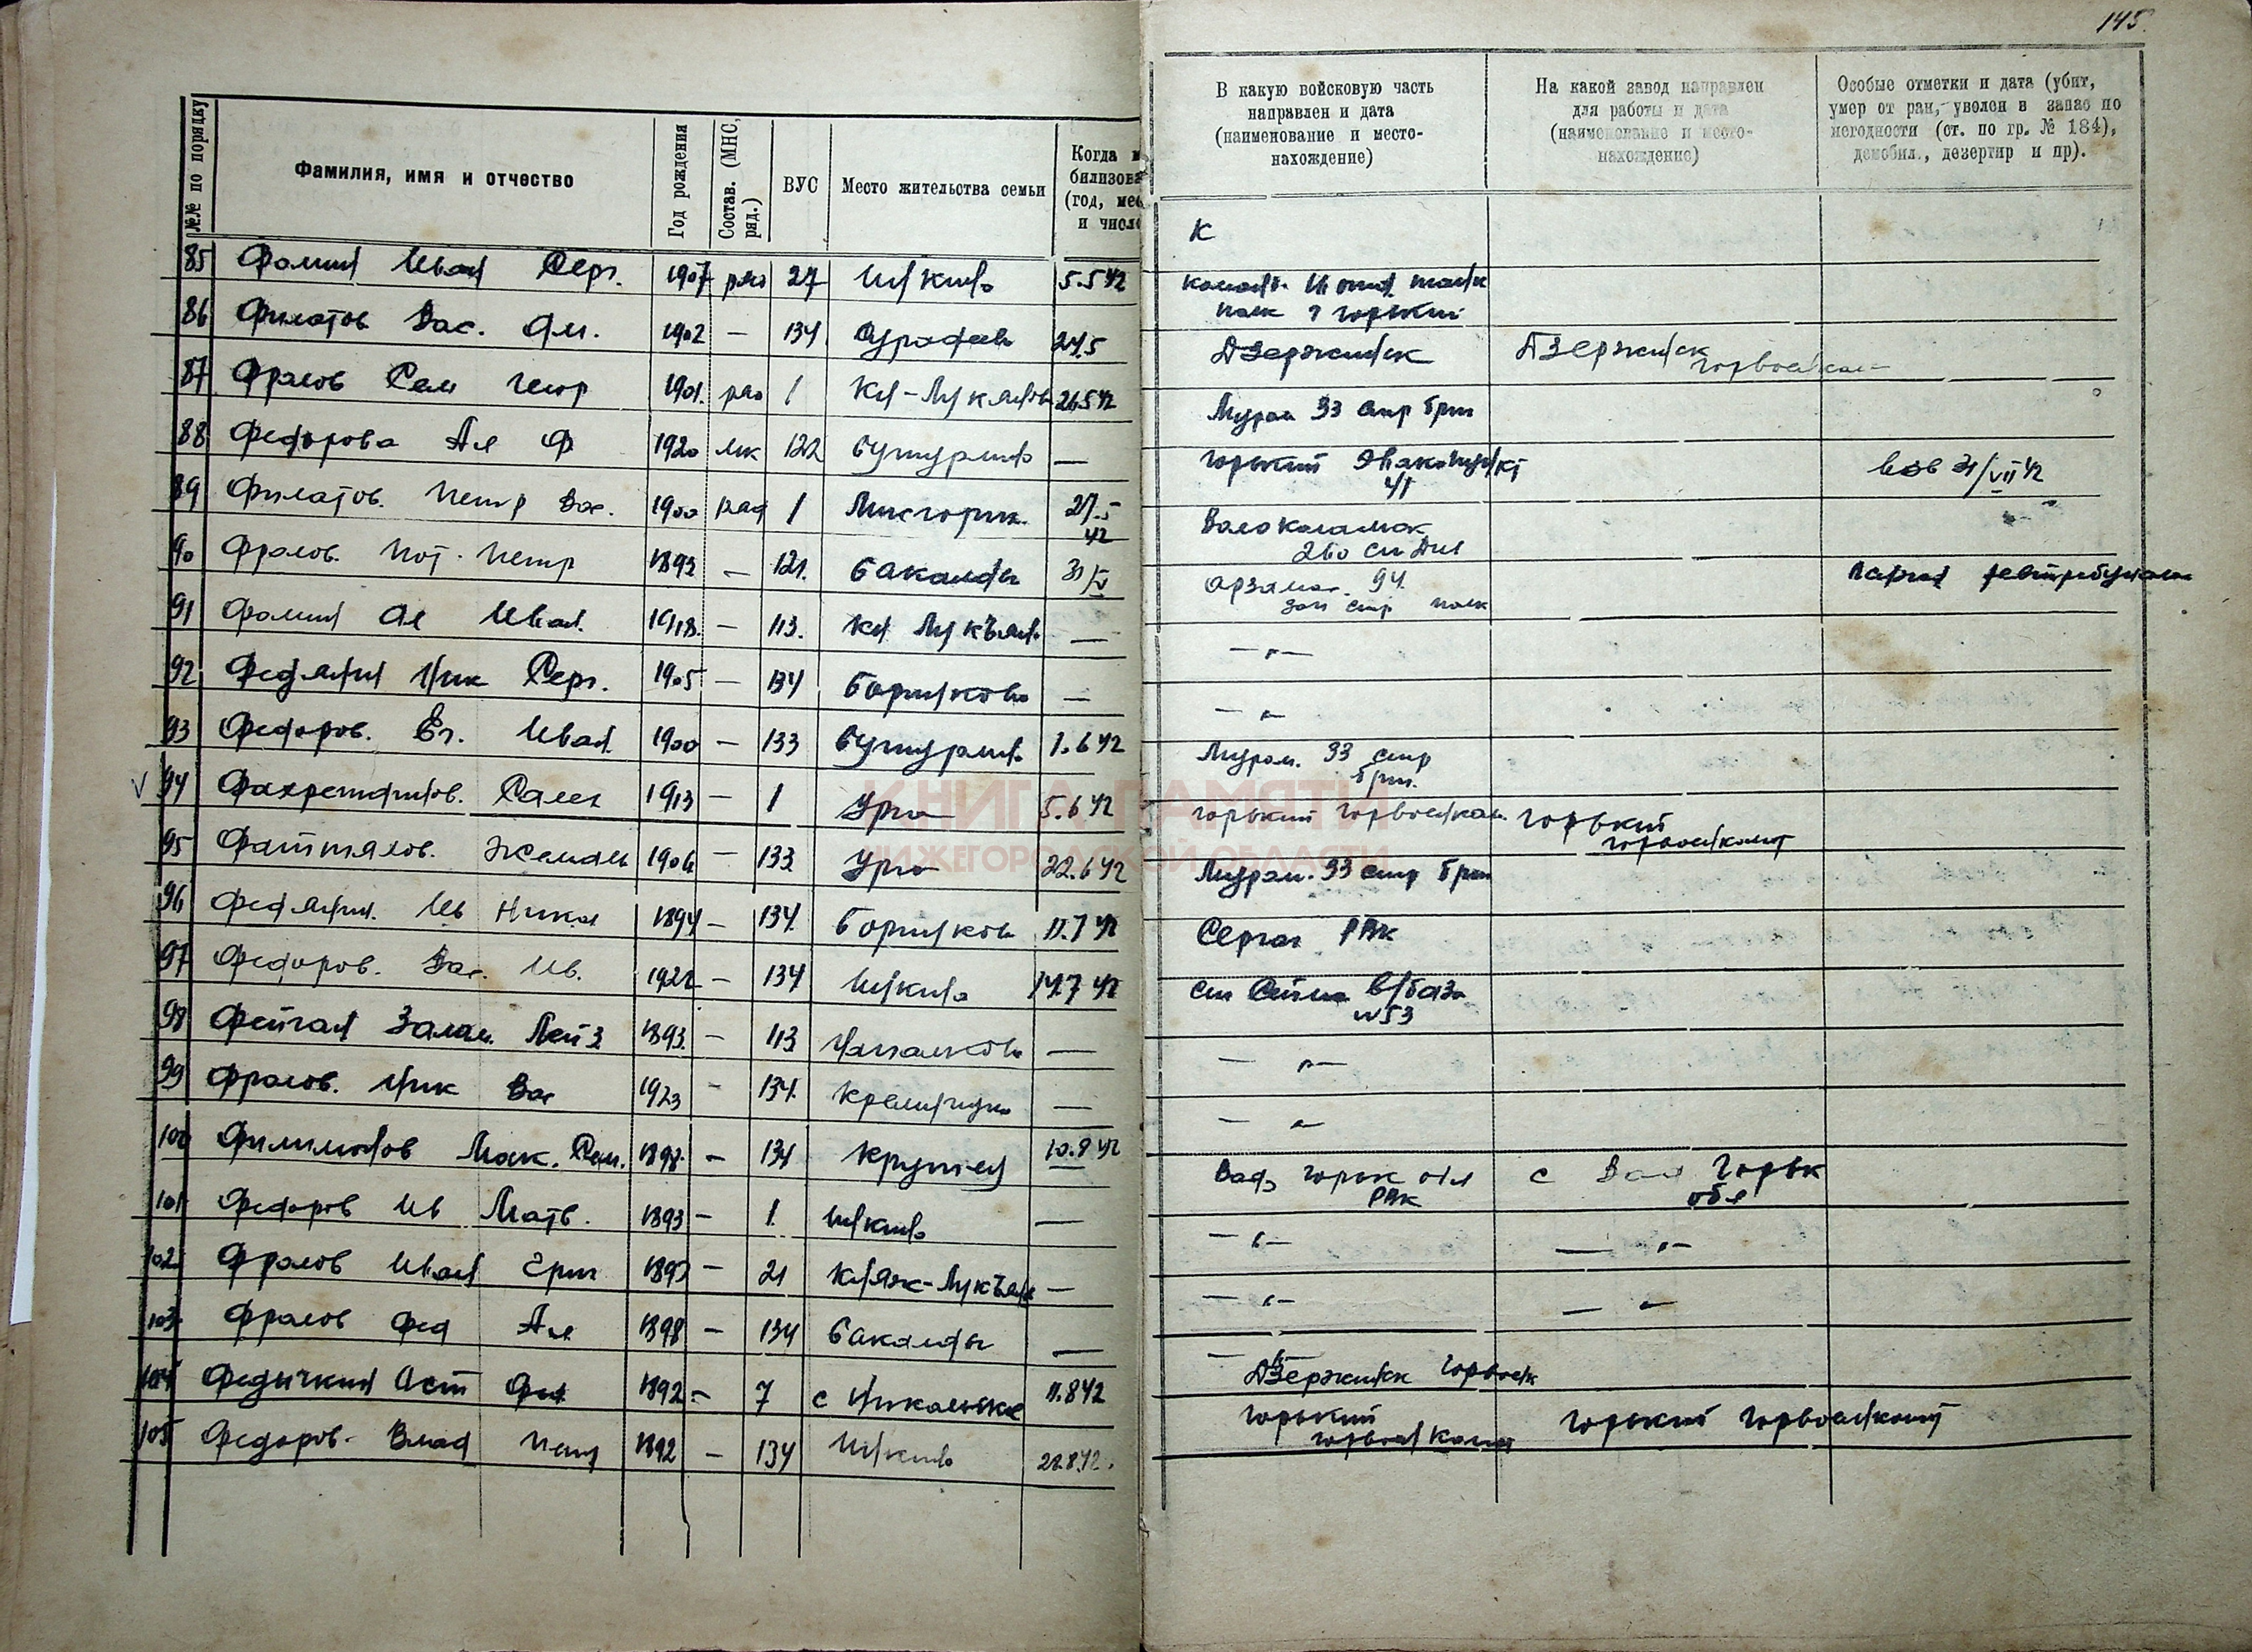 145
№№ по порядку
Фамилия, имя и отчество
Год рождения
Состав. (МНС, ряд.)
ВУС
Место жительства семьи
Когда м
билизова
(год, мес
и число
В какую войсковую часть
направлен и дата
(наименование и место-
нахождение)
На какой завод направлен
для работы и дата
(наименование и место-
нахождение)
Особые отметки и дата (убит,
умер от ран, уволен в запас по
негодности (ст. по гр. № 184),
демобил., дезертир и пр).
К
85 Фомин Иван Серг. 1907 ряд 27 Инкино 5.5 42
полк г Горький
86 Филатов Вас. 1902 — 134 24.5 Дзержинск Дзержинск
горвоенком
87 Фролов Сем 1901. ряд 1 Кн-Лукяново 26.5 42 Муром 33 стр бриг
88 Федорова Ал Ф 1920 мк 122 Бутурлино — Горький
31/VII 42
89 Филатов. Петр Вас. 1900 ряд 1 27.5
42
Волоколамск
260
90 Фролов. Пот. Петр 1893 — 121. Бакалды 31/V Арзамас. 94.
зап стр полк
91 Фомин Ал Иван. 1918. — 113. Кн Лукъяно — — „ —
92 Федянин Ник Серг. 1905 — 134 Борнуково — — „ —
93 Федоров. Ег. Иван. 1900 — 133 Бутурлино 1.6 42 Муром. 33 стр
бриг.
V 94 Фахретдинов. Салех 1913 — 1 Урга 5.6 42 Горький Горвоенком. Горький
горвоенкомат
95 Фаттялов. Жемаль 1906 — 133 Урга 22.6 42 Муром. 33 стр бриг
96 Федянин. Ив Никол 1894 — 134. Борнуково 11.7 42 Сергач РВК
97 Федоров. Вас. Ив. 1922 — 134 Инкино 14.7 42 ст Сейма в/база
№ 53
98 Фейган Залам. Лейз 1893. — 113 — — „ —
99 Фролов. Ник Вас 1923 — 134. Кремницкое — — „ —
100 Филимонов Мак. Сем. 1898. — 134 Крутец 10.8 42 Вад, Горьк обл
РВК
с Вад Горьк
обл
101 Федоров Ив Матв. 1893 — 1. Инкино — — „ — — „ —
102 Фролов Иван Григ 1897 — 21 Княж-Лукъян — — „ — — „ —
103 Фролов Фед Ал 1898 — 134 Бакалды — — „ —
104 Федичкин Аст 1892 — 7 с Никольское 11.8 42 Дзержинск горвоен
105 Федоров. Влад Петр 1892 — 134 Инкино 22.8.42. Горький
горвоенкомат
Горький Горвоенкомат
КНИГА ПАМЯТИ
НИЖЕГОРОДСКОЙ ОБЛАСТИ